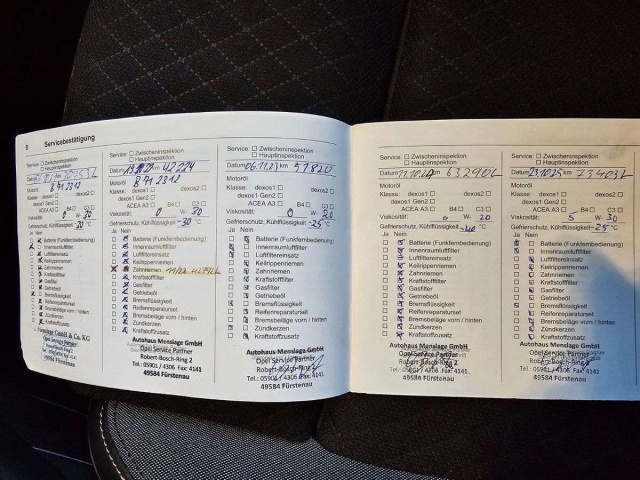 6
Servicebestätigung
Service: Zwischeninspektion
Hauptinspektion
Datum km
Motoröl
B 71 2312
Klasse: dexos1 dexos2
dexos1 Gen2
ACEA A3 B4 C3
Viskosität: 0 W- 20
Gefrierschutz, Kühlflüssigkeit -20 °C
Ja Nein
Batterie (Funkfernbedienung)
Innenraumluftfilter
Luftfiltereinsatz
Keilrippenriemen
Zahnriemen
Kraftstofffilter
Gasfilter
Getriebeöl
Bremsflüssigkeit
Reifenreparaturset
Bremsbeläge vorn / hinten
Zündkerzen
Kraftstoffzusatz
Menslage GmbH & Co. KG
Service: Zwischeninspektion
Hauptinspektion
Datum km 42224
Motoröl
B 71 2312
Klasse: dexos1 dexos2
dexos1 Gen2
ACEA A3 B4 C3
Viskosität: 0 W- 30
Gefrierschutz, Kühlflüssigkeit -30 °C
Ja Nein
Batterie (Funkfernbedienung)
Innenraumluftfilter
Luftfiltereinsatz
Keilrippenriemen
Zahnriemen
Kraftstofffilter
Gasfilter
Getriebeöl
Bremsflüssigkeit
Reifenreparaturset
Bremsbeläge vorn / hinten
Zündkerzen
Kraftstoffzusatz
Autohaus Menslage GmbH
Opel Service Partner
Robert-Bosch-Ring 2
Tel.: 05901 / 4306 Fax: 4141
49584 Fürstenau
Service: Zwischeninspektion
Hauptinspektion
Datum 06.11.23 km 57820
Motoröl
Klasse: dexos1 dexos2
dexos1 Gen2
ACEA A3 B4 C3
Viskosität: 0 W- 20
Gefrierschutz, Kühlflüssigkeit -25 °C
Ja Nein
Batterie (Funkfernbedienung)
Innenraumluftfilter
Luftfiltereinsatz
Keilrippenriemen
Zahnriemen
Kraftstofffilter
Gasfilter
Getriebeöl
Bremsflüssigkeit
Reifenreparaturset
Bremsbeläge vorn / hinten
Zündkerzen
Kraftstoffzusatz
Autohaus Menslage GmbH
Opel Service Partner
Robert-Bosch-Ring 2
Tel.: 05901 / 4306 Fax: 4141
49584 Fürstenau
Service: Zwischeninspektion
Hauptinspektion
Datum 11.10.24 km 63290
Motoröl
Klasse: dexos1 dexos2
dexos1 Gen2
ACEA A3 B4 C3
Viskosität: 0 W- 20
Gefrierschutz, Kühlflüssigkeit -40 °C
Ja Nein
Batterie (Funkfernbedienung)
Innenraumluftfilter
Luftfiltereinsatz
Keilrippenriemen
Zahnriemen
Kraftstofffilter
Gasfilter
Getriebeöl
Bremsflüssigkeit
Reifenreparaturset
Bremsbeläge vorn / hinten
Zündkerzen
Kraftstoffzusatz
Autohaus Menslage GmbH
Opel Service Partner
Robert-Bosch-Ring 2
Tel.: 05901 / 4306 Fax: 4141
49584 Fürstenau
Service: Zwischeninspektion
Hauptinspektion
Datum 23.10.25 km 73403
Motoröl
Klasse: dexos1 dexos2
dexos1 Gen2
ACEA A3 B4 C3
Viskosität: 5 W- 30
Gefrierschutz, Kühlflüssigkeit -25 °C
Ja Nein
Batterie (Funkfernbedienung)
Innenraumluftfilter
Luftfiltereinsatz
Keilrippenriemen
Zahnriemen
Kraftstofffilter
Gasfilter
Getriebeöl
Bremsflüssigkeit
Reifenreparaturset
Bremsbeläge vorn / hinten
Zündkerzen
Kraftstoffzusatz
Autohaus Menslage GmbH
Opel Service Partner
Tel.: 05901 / 4306 Fax: 4141
49584 Fürstenau